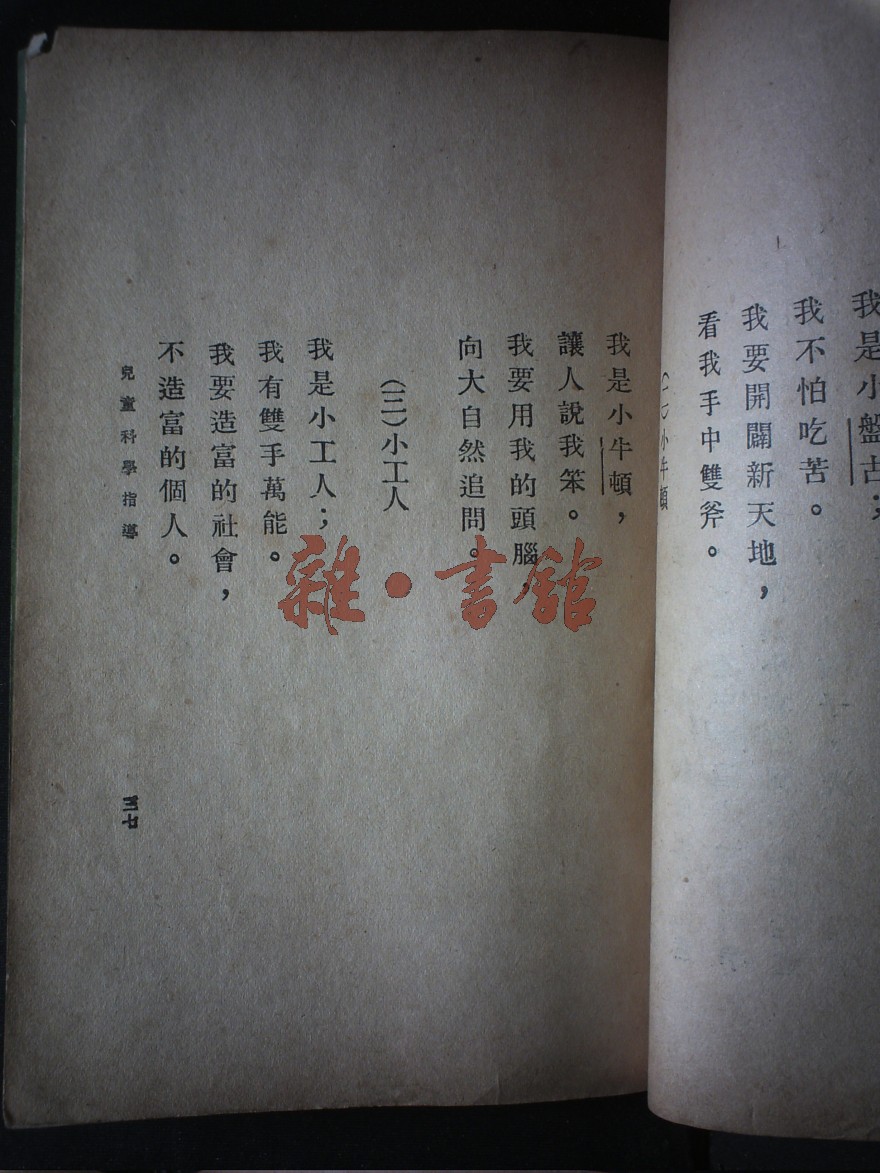 我是小盤古；
我不怕吃苦。
我要開闢新天地，
看我手中雙斧。
小牛頓
我是小牛頓，
讓人說我笨。
我要用我的頭腦，
向大自然追問。
（三）小工人
我是小工人；
我有雙手萬能。
我要造富的社會，
不造富的個人。
兒童科學指導
雜·書館